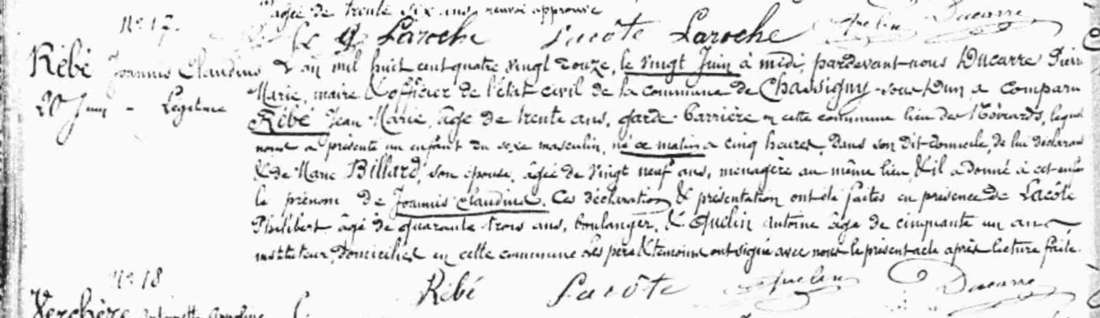 agée de trente six ans renvoi approuvé
Laroche Lacôte Laroche Auclin Ducarre
N° 17.
Rébé Joannis Claudius
20 Juin - Légitime
L'an mil huit cent quatre vingt douze, le vingt Juin à midi, pardevant nous Ducarre
Marie, maire & officier de l'état civil de la commune de Chassigny sous Dun a comparu
Rébé Jean Marie, âgé de trente ans, garde-barrière en cette commune lieu des lequel
nous a présenté un enfant du sexe masculin, né ce matin à cinq heures, dans son dit domicile, de lui déclarant
& de Marie Billard, son épouse, âgée de vingt neuf ans, ménagère au même lieu, & il a donné à cet enfant
le prénom de Joannis Claudius. Ces déclaration & présentation ont été faites en présence de Lacôte
Philibert âgé de quarante trois ans, boulanger, & Antoine âgé de cinquante un ans
instituteur, domiciliés en cette commune. Les père & témoins ont signé avec nous le présent acte après lecture faite.
Rébé Lacôte Ducarre
N° 18
Verchère